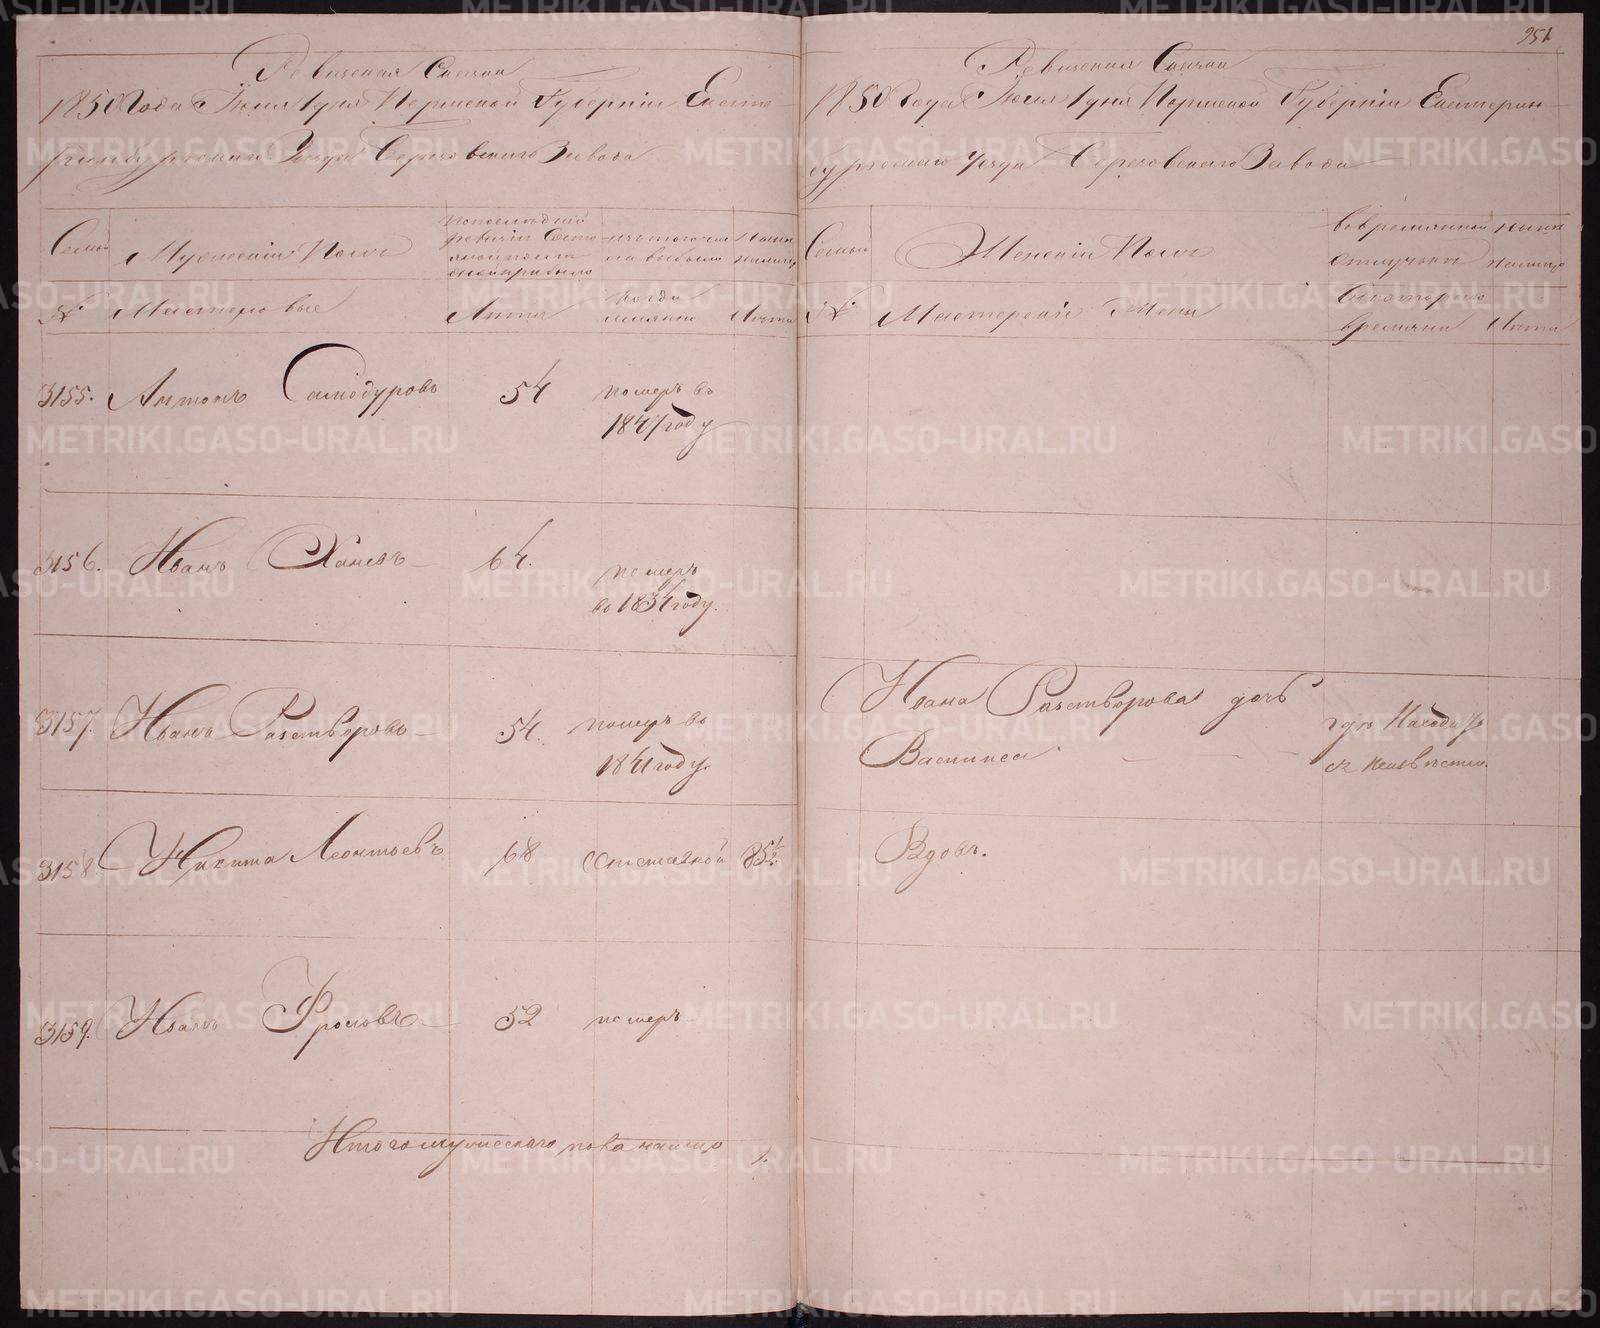 951
Ревизская Сказка
1850 Года Июля 1 дня Пермской Губерніи Екате-
ринбургскаго Уезда Березовскаго Завода
Семьи
Мужескій Полъ
по последней
ревизіи состо
яло и после
оной прибыло
изъ того чи
сла выбыло
Ныне
налицо
№
Мастеровые
Лета
когда
имянно
Лета
3155. Антонъ Самодуровъ 54 померъ въ
1841 году
3156. Иванъ Ханевъ 64. померъ
въ 1834 году.
3157. Иванъ Разстворовъ 54. померъ въ
1841 году.
3158. Никита Леонтьевъ 68 Отставной 85½.
3159. Иванъ Фроловъ 52 померъ
Итого мужескаго пола налицо 1.
Ревизская Сказка
1850 Года Июля 1 дня Пермской Губерніи Екатерин-
бургскаго Уезда Березовскаго Завода
Семьи
Женскій Полъ
во временной
отлучке
ныне
налицо
№
Мастерскіе Жены
С котораго
времяни
Лета
Ивана Разстворова дочь
Васииса
где находи
ся неизвестно.
Вдовъ.
METRIKI.GASO-URAL.RU